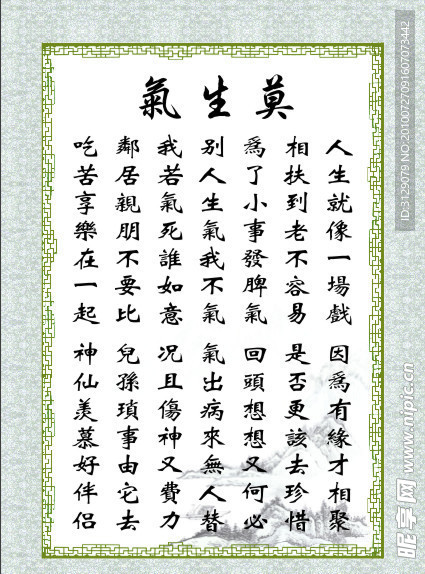 莫生氣
人生就像一場戲 因爲有緣才相聚
相扶到老不容易 是否更該去珍惜
爲了小事發脾氣 回頭想想又何必
别人生氣我不氣 氣出病來無人替
我若氣死誰如意 况且傷神又費力
鄰居親朋不要比 兒孫瑣事由它去
吃苦享樂在一起 神仙羡慕好伴侣
ID:3129079 NO:20100727091607073442
昵享网 www.nipic.cn